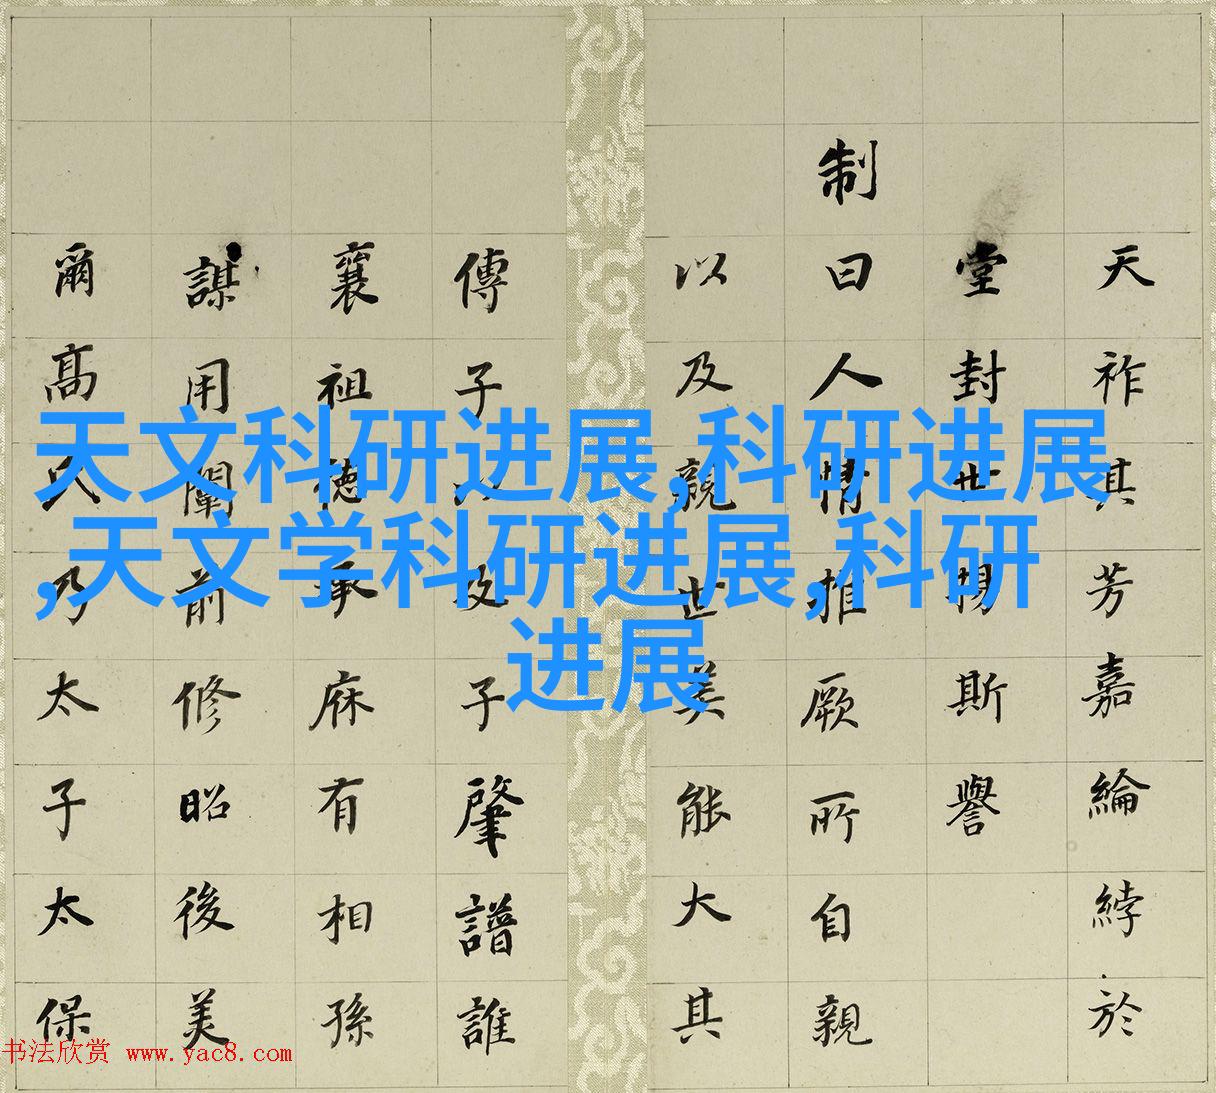 天文科研进展,科研进展
,天文学科研进展,科研
进展
天祚其芳嘉綸綍於
堂封世揚斯譽
制曰人情推厥所自親
以及親世美能大其
傳子以及子肇譜誰
襄祖德承庥有相孫
謀用闡前修昭後美
爾高氏乃太子太保
书法欣赏 www.yac8.com